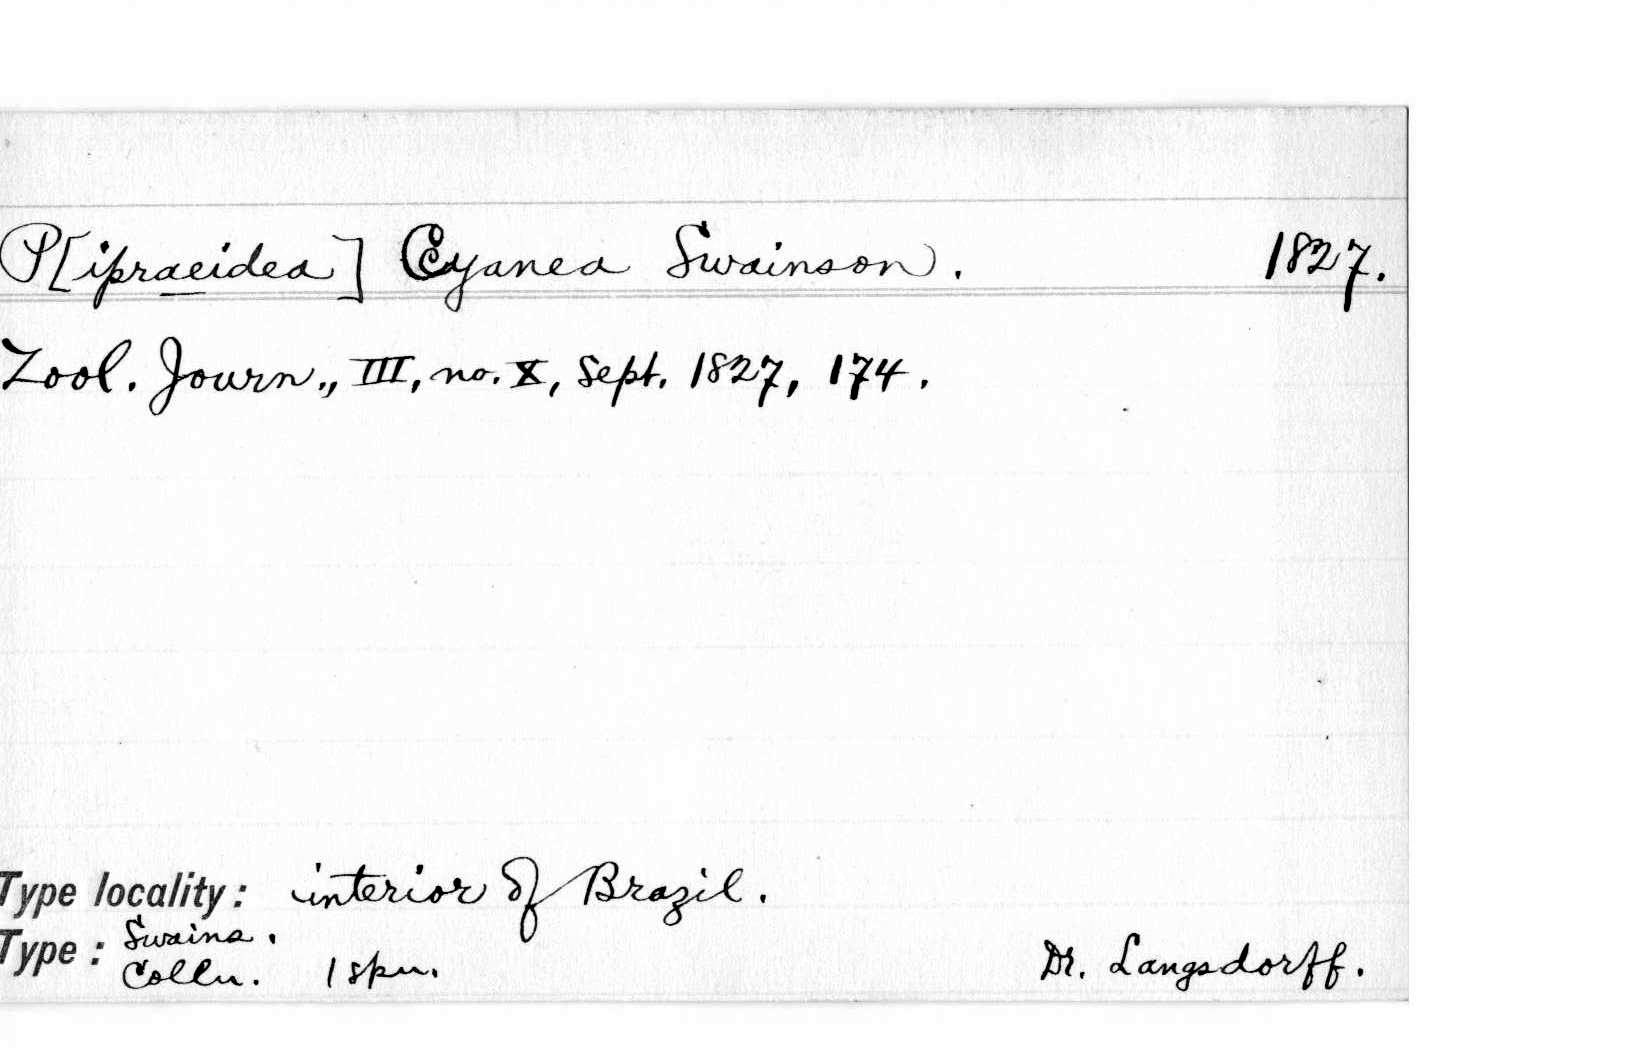 P[ipraeidea] Cyanea Swainson. 1827.
Zool. Journ., III, no. X, Sept. 1827, 174.
Type locality: interior of Brazil.
Type: Swains.
Colln. 1 spm. Dr. Langsdorff.